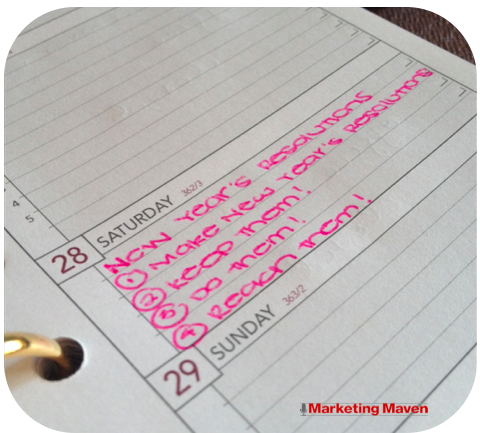 4
5
28 SATURDAY 362/3
New Year's Resolutions
① Make New Year's Resolutions
② Keep Them!
③ Do Them!
④ Reach Them!
29 SUNDAY 363/2
Marketing Maven